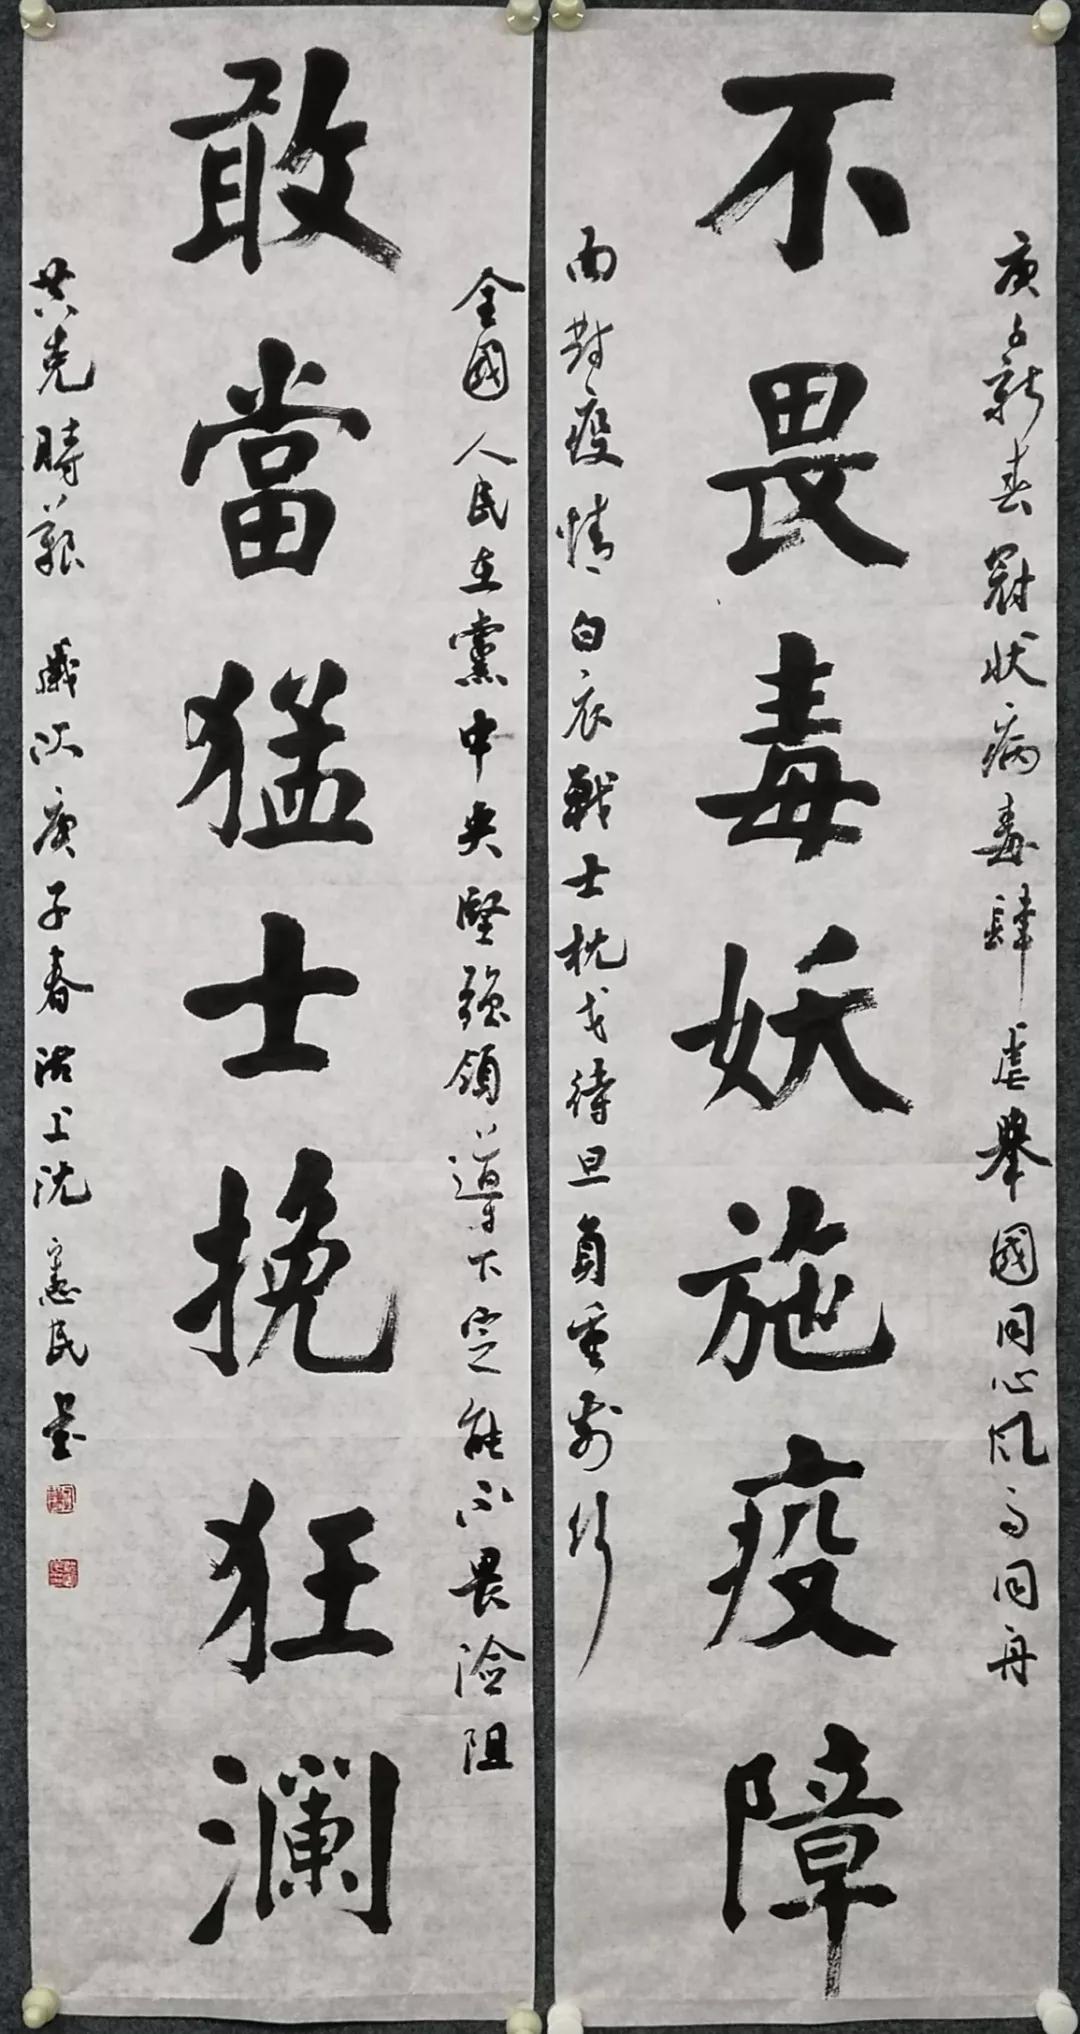 不畏毒妖施疫障
庚子新春冠状病毒肆虐舉國同心風雨同舟
面對疫情白衣戰士枕戈待旦負重前行
敢當猛士挽狂瀾
全國人民在黨中央堅強領導下定能不畏險阻
共克時艱 歲次庚子春浴上沈憲民書